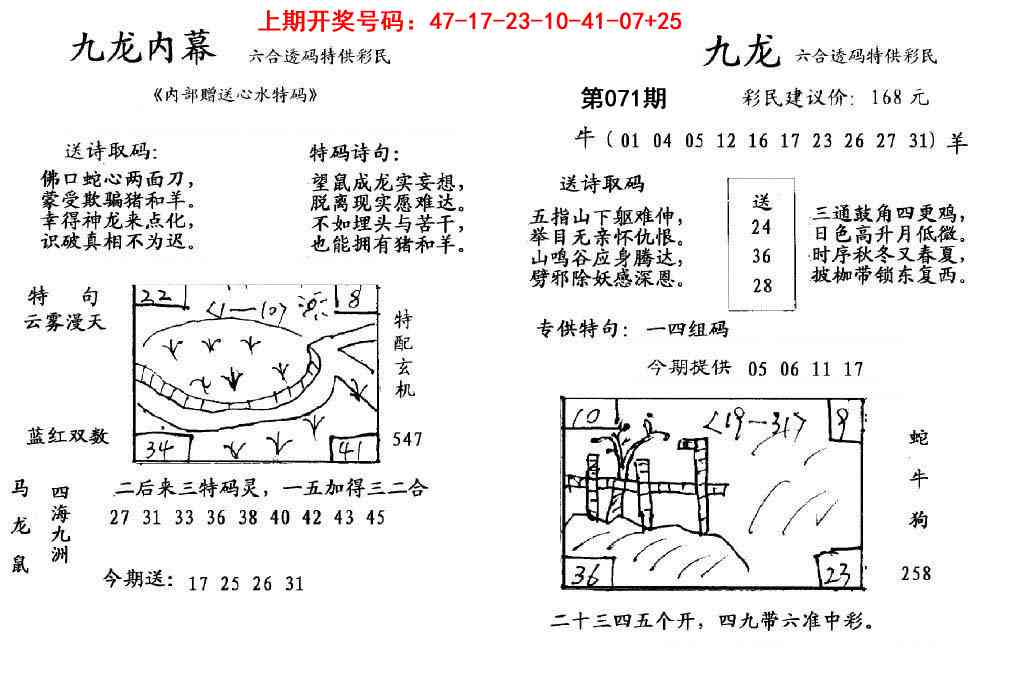 上期开奖号码：47-17-23-10-41-07+25
九龙内幕 六合透码特供彩民
《内部赠送心水特码》
送诗取码：
佛口蛇心两面刀，
蒙受欺骗猪和羊。
幸得神龙来点化，
识破真相不为迟。
特码诗句：
望鼠成龙实妄想，
脱离现实愿难达。
不如埋头与苦干，
也能拥有猪和羊。
特 句
云雾漫天
蓝红双数
22
8
<1—10>
34
41
特配玄机
547
马龙鼠
四海九洲
二后来三特码灵，一五加得三二合
27 31 33 36 38 40 42 43 45
今期送：17 25 26 31
九龙 六合透码特供彩民
第071期 彩民建议价：168元
牛（01 04 05 12 16 17 23 26 27 31）羊
送诗取码
五指山下躯难伸，
举目无亲怀仇恨。
山鸣谷应身腾达，
劈邪除妖感深恩。
送
24
36
28
三通鼓角四更鸡，
日色高升月低微。
时序秋冬又春夏，
披枷带锁东复西。
专供特句：一四组码
今期提供 05 06 11 17
10
<19—31>
9
36
23
蛇
牛
狗
258
二十三四五个开，四九带六准中彩。